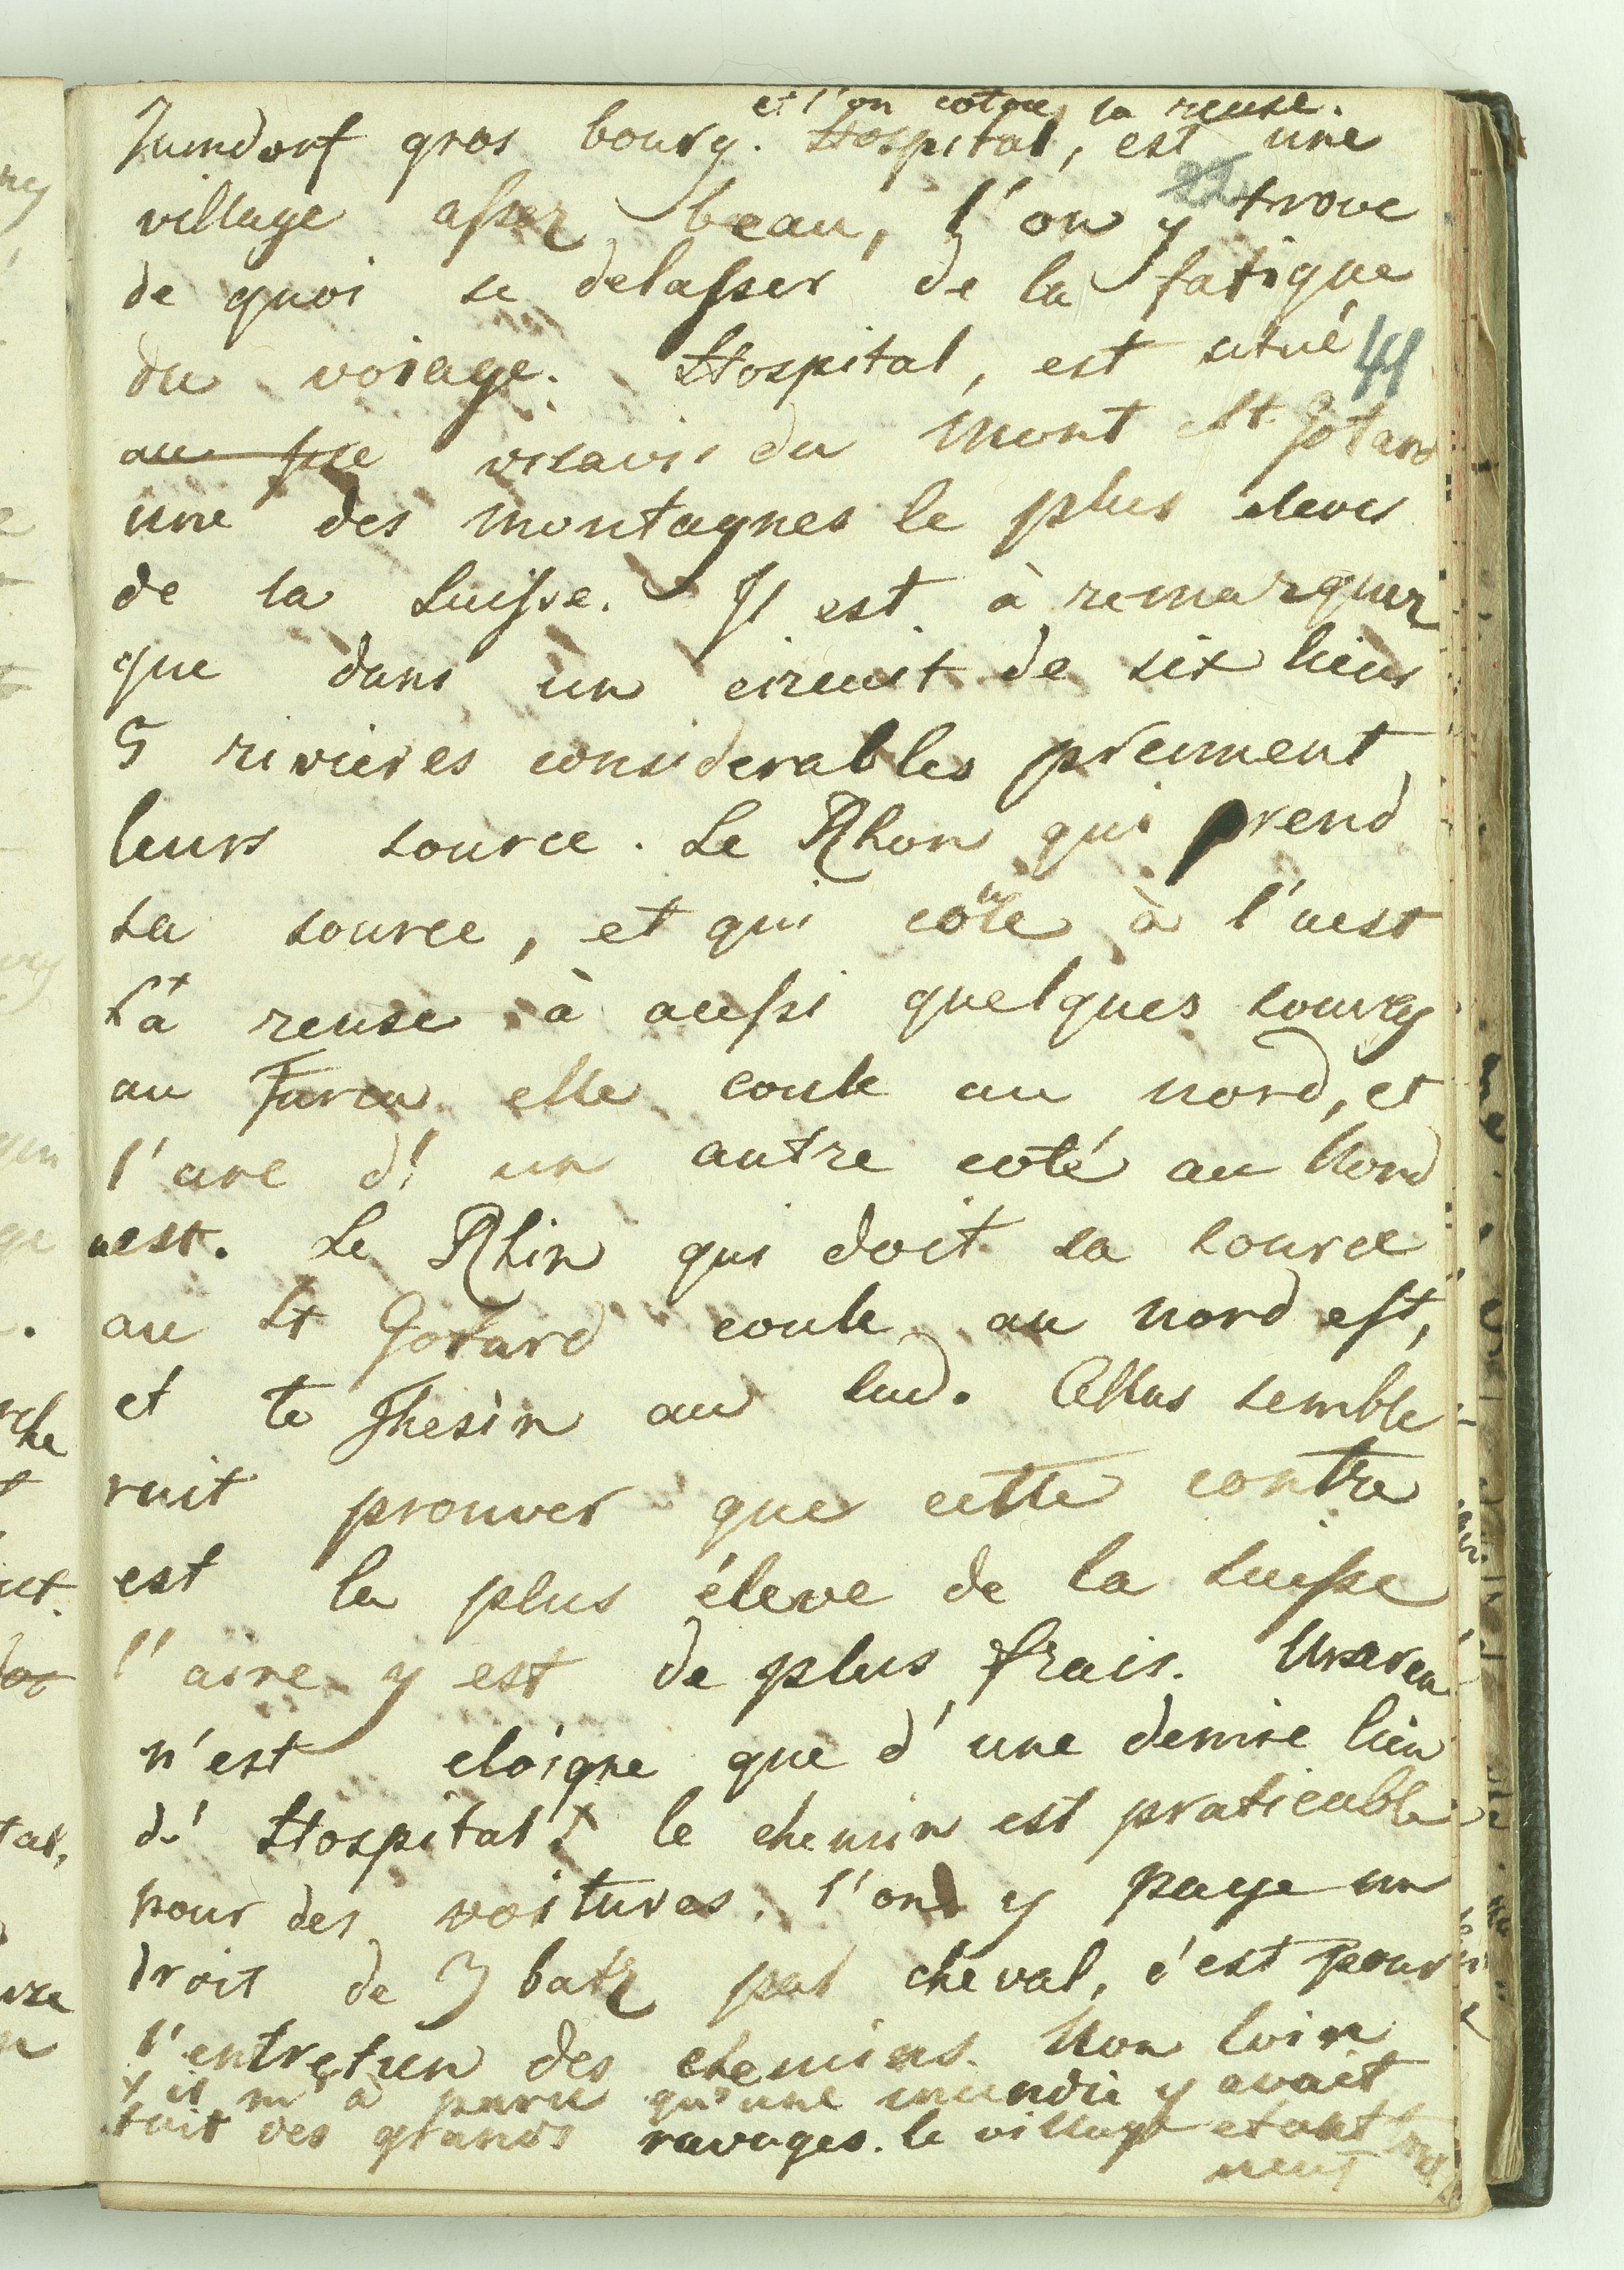 et l'on cotoie la reuse.
Zumdorf gros bourg. Hospital, est une
22
village assez beau, l'on y trove
de quoi se delasser de la fatigue
du voiage. Hospital, est situé
44
au pie visavis du Mont St Gotard
une des montagnes le plus eleves
de la Suisse. Il est à remarquer
que dans un circuit de six lieus
5 rivieres considerables preiment
leurs source. Le Rhon qui prend
sa source, et qui coule à l'uest
La reuse à aussi quelques sources
au Furca elle coule au nord, et
l'are d'un autre coté au Nord
uest. Le Rhin qui doit sa source
au St Gotard coule au nord est,
et le Thesin au sud. Cellas semble
rait prouver que cette contre
est la plus éleve de la Suisse
l'aire y est de plus frais. Urseren
n'est eloigne que d'une demie lieu
d'Hospital. x le chemin est praticable
pour des voitures. l'on y paye un
droit de 3 batz par cheval, c'est pour
l'entretien des chemins. Non loin
x il m'à paru qu'une incendie y avait
fait des grands ravages. le village etant tout
neuf